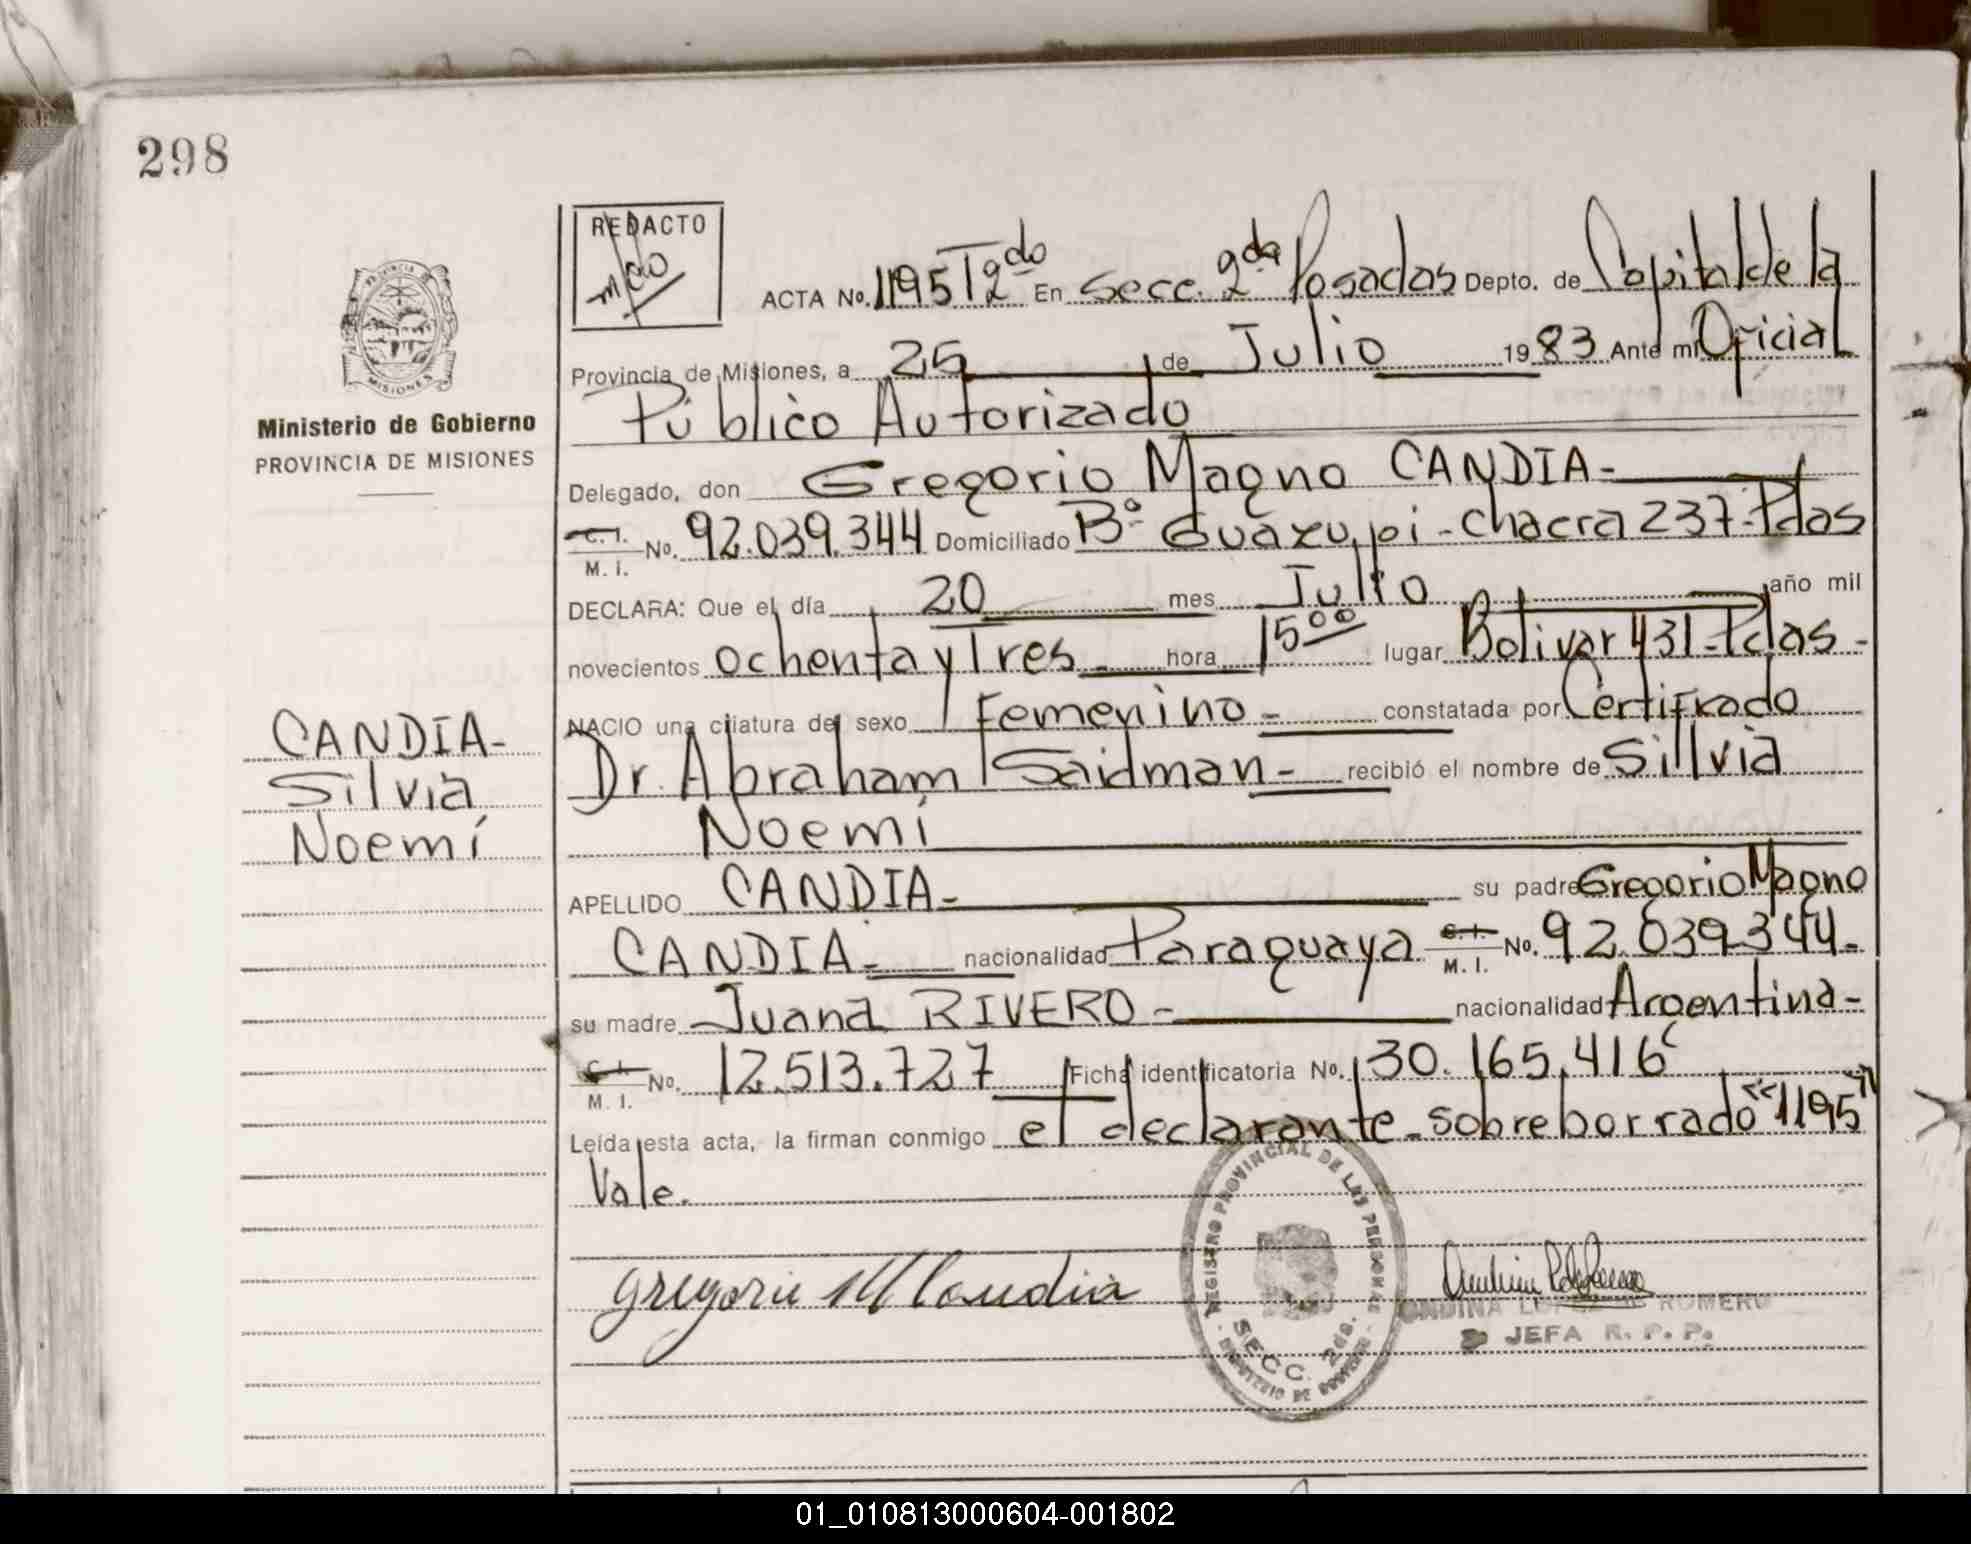 298
REDACTO
ACTA No. 1195 T 2do En Secc. 2da Posadas Depto. de Capital de la
Provincia de Misiones, a 25 de Julio 1983 Ante mi Oficial
Público Autorizado
Ministerio de Gobierno
PROVINCIA DE MISIONES
Delegado, don Gregorio Magno CANDIA-
C. I. No. 92.039.344 Domiciliado Bº Guazupi - Chacra 237-Pdas
M. I.
DECLARA: Que el día 20 mes Julio año mil
novecientos ochenta y Tres - hora 15 00 lugar Bolivar 431-Pdas-
NACIO una criatura del sexo Femenino - constatada por Certificado
Dr. Abraham Saidman - recibió el nombre de Sillvia
Noemí
CANDIA-
Silvia
Noemí
APELLIDO CANDIA- su padre Gregorio Magno
CANDIA- nacionalidad Paraguaya C. I. No. 92.039.344-
M. I.
su madre Juana RIVERO - nacionalidad Argentina-
C. I. No. 12.513.727 Ficha identificatoria No. 30.165.416
M. I.
Leída esta acta, la firman conmigo el declarante-sobreborrado "1195"
Vale.
Gregorio M Candia
REGISTRO PROVINCIAL DE LAS PERSONAS
SECC. 2da.
MINISTERIO DE GOBIERNO
ROMERO
JEFA R. P. P.
01_010813000604-001802